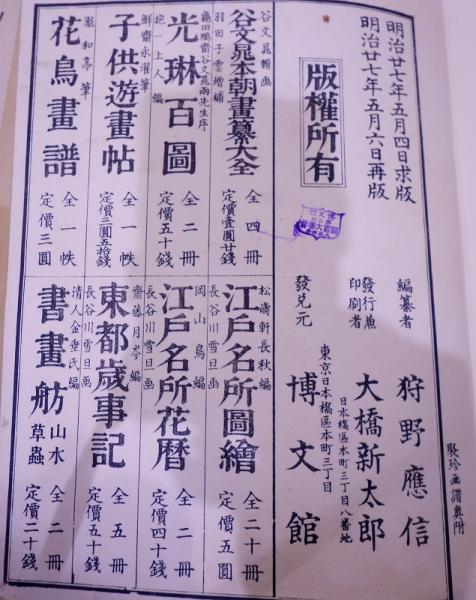 明治廿七年五月四日求版
明治廿七年五月六日再版
版權所有
編纂者　狩野應信
發行兼印刷者　大橋新太郎
日本橋區本町三丁目八番地
東京日本橋區本町三丁目
發兌元　博文館
聚珍画譜奥附
谷文晁粉画
谷文晁本朝畫纂大全　全四冊
定價壹圓廿錢
羽田子雲增補
龜田鵬齋谷文晁兩先生序
光琳百圖　全二冊
抱一上人編
定價五十錢
鮮齋永濯筆
子供遊畫帖　全一帙
定價三圓五拾錢
瀧和亭筆
花鳥畫譜　全一帙
定價三圓
松濤軒長秋編
江戸名所圖繪　全二十冊
長谷川雪旦画
定價五圓
岡山鳥編
江戸名所花暦　全二冊
長谷川雪旦画
定價四十錢
齋藤月岑編
東都歲事記　全五冊
長谷川雪旦画
定價五十錢
清人金垂氏編
書畫舫　山水草蟲　全二冊
定價二十錢